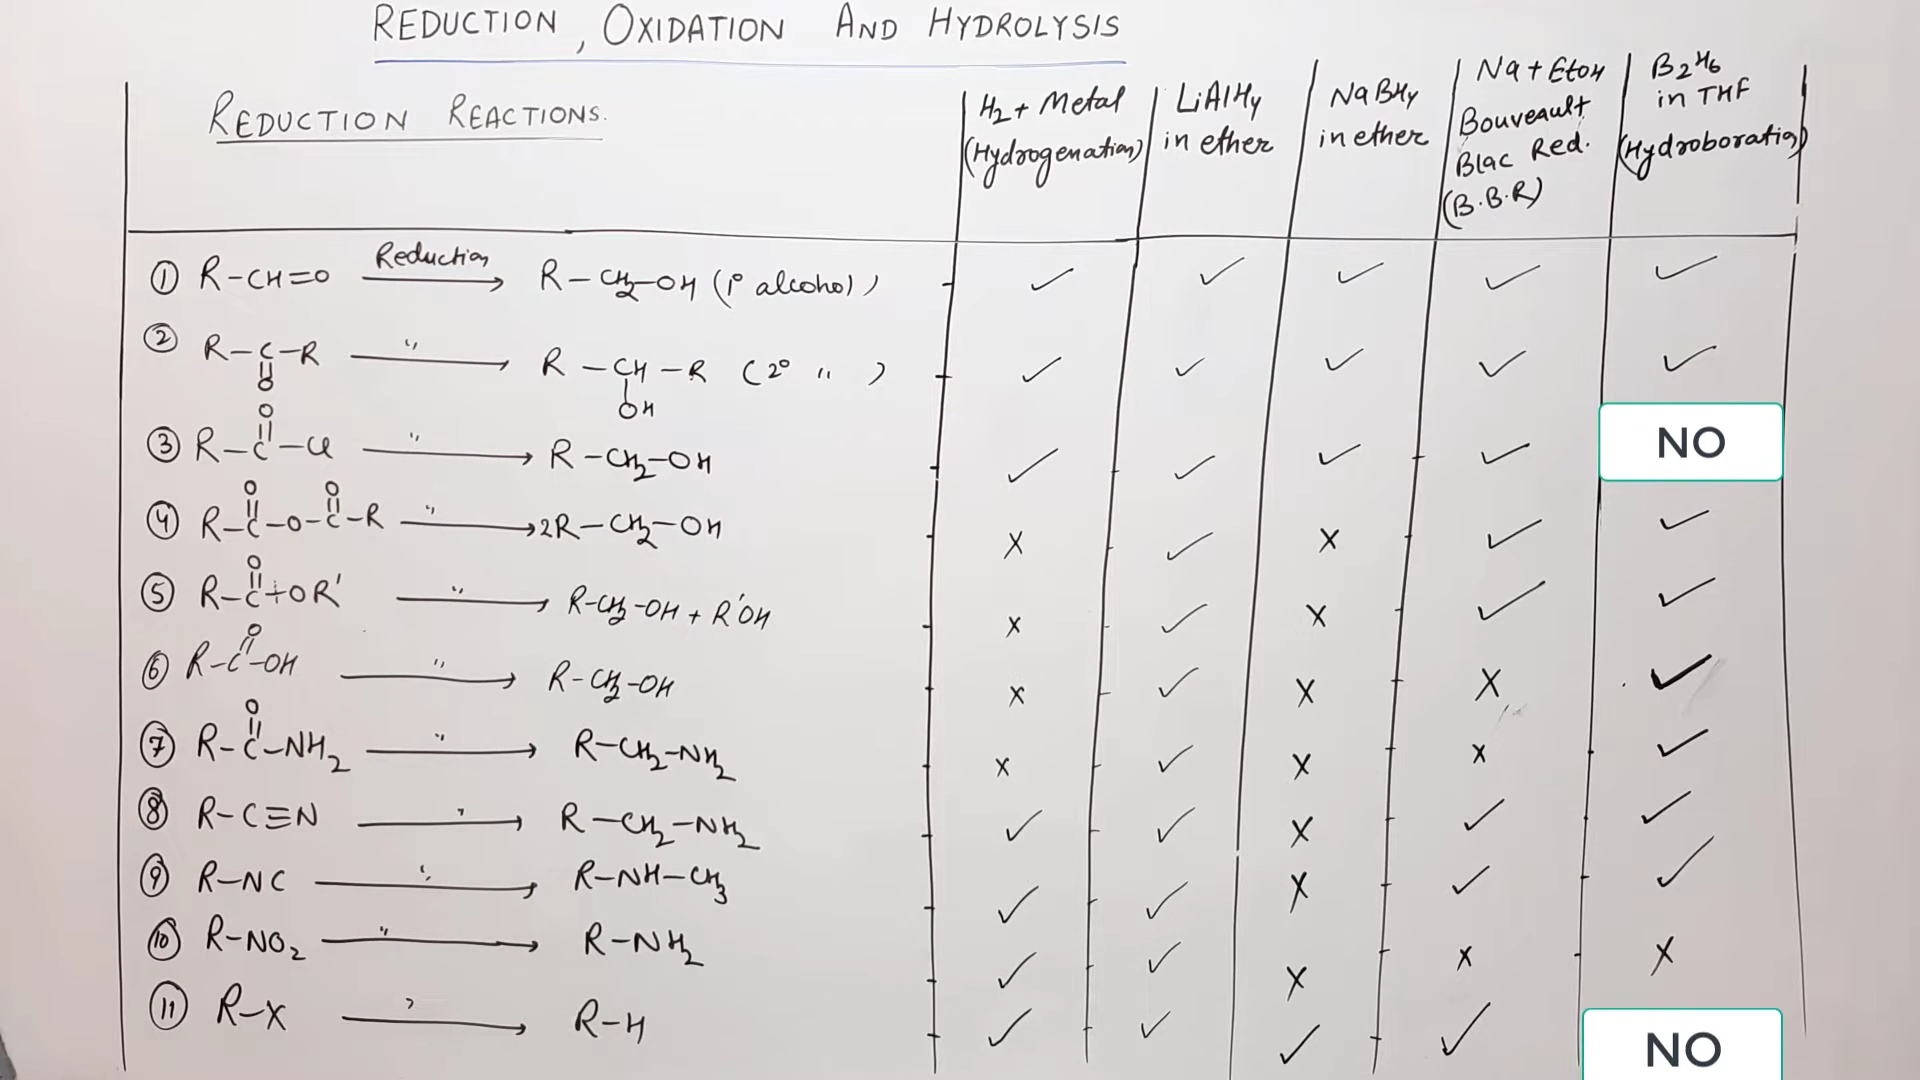 REDUCTION, OXIDATION AND HYDROLYSIS
REDUCTION REACTIONS.
H₂ + Metal
(Hydrogenation)
LiAlH₄
in ether
NaBH₄
in ether
Na + EtOH
Bouveault
Blac Red.
(B.B.R)
B₂H₆
in THF
(Hydroboration)
① R-CH=O Reduction → R-CH₂-OH (1° alcohol) ✓ ✓ ✓ ✓ ✓
② R-C(=O)-R " → R-CH(OH)-R (2° ") ✓ ✓ ✓ ✓ ✓
③ R-C(=O)-Cl " → R-CH₂-OH ✓ ✓ ✓ ✓ NO
④ R-C(=O)-O-C(=O)-R " → 2R-CH₂-OH X ✓ X ✓ ✓
⑤ R-C(=O)+OR' " → R-CH₂-OH + R'OH X ✓ X ✓ ✓
⑥ R-C(=O)-OH " → R-CH₂-OH X ✓ X X ✓
⑦ R-C(=O)-NH₂ " → R-CH₂-NH₂ X ✓ X X ✓
⑧ R-C≡N " → R-CH₂-NH₂ ✓ ✓ X ✓ ✓
⑨ R-NC " → R-NH-CH₃ ✓ ✓ X ✓ ✓
⑩ R-NO₂ " → R-NH₂ ✓ ✓ X X X
⑪ R-X " → R-H ✓ ✓ ✓ ✓ NO